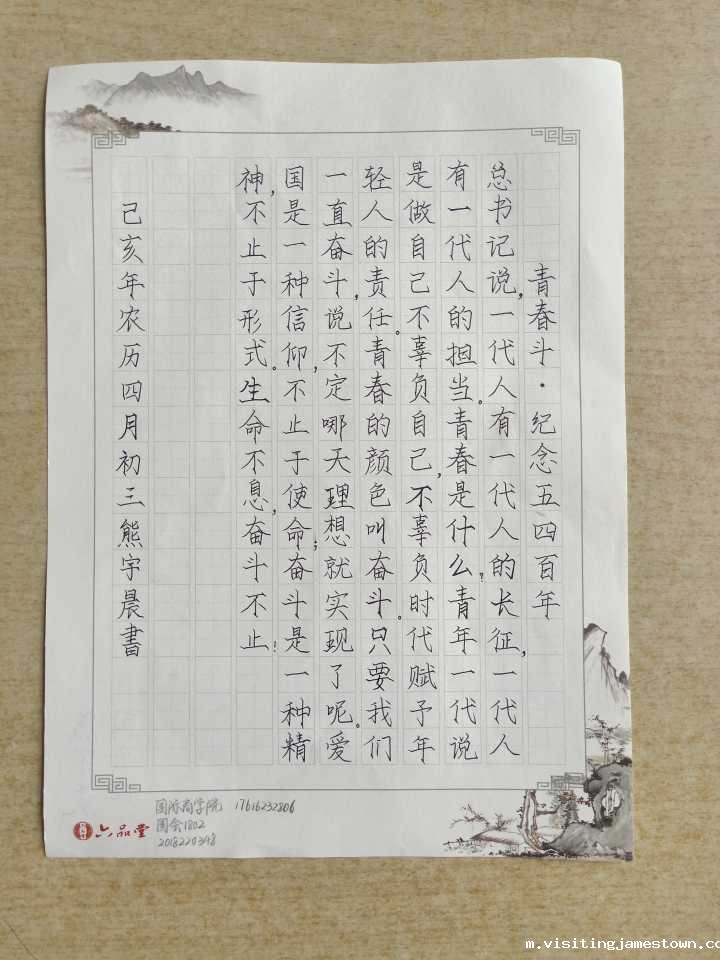 青春斗·纪念五四百年
总书记说,一代人有一代人的长征,一代人
有一代人的担当。青春是什么?青年一代说
是做自己不辜负自己,不辜负时代赋予年
轻人的责任。青春的颜色叫奋斗。只要我们
一直奋斗,说不定哪天理想就实现了呢。爱
国是一种信仰,不止于使命;奋斗是一种精
神,不止于形式。生命不息,奋斗不止!
己亥年农历四月初三熊宇晨書
国际商学院 17616232806
国会1802
2018220398
六品堂
m.visitingjamestown.co